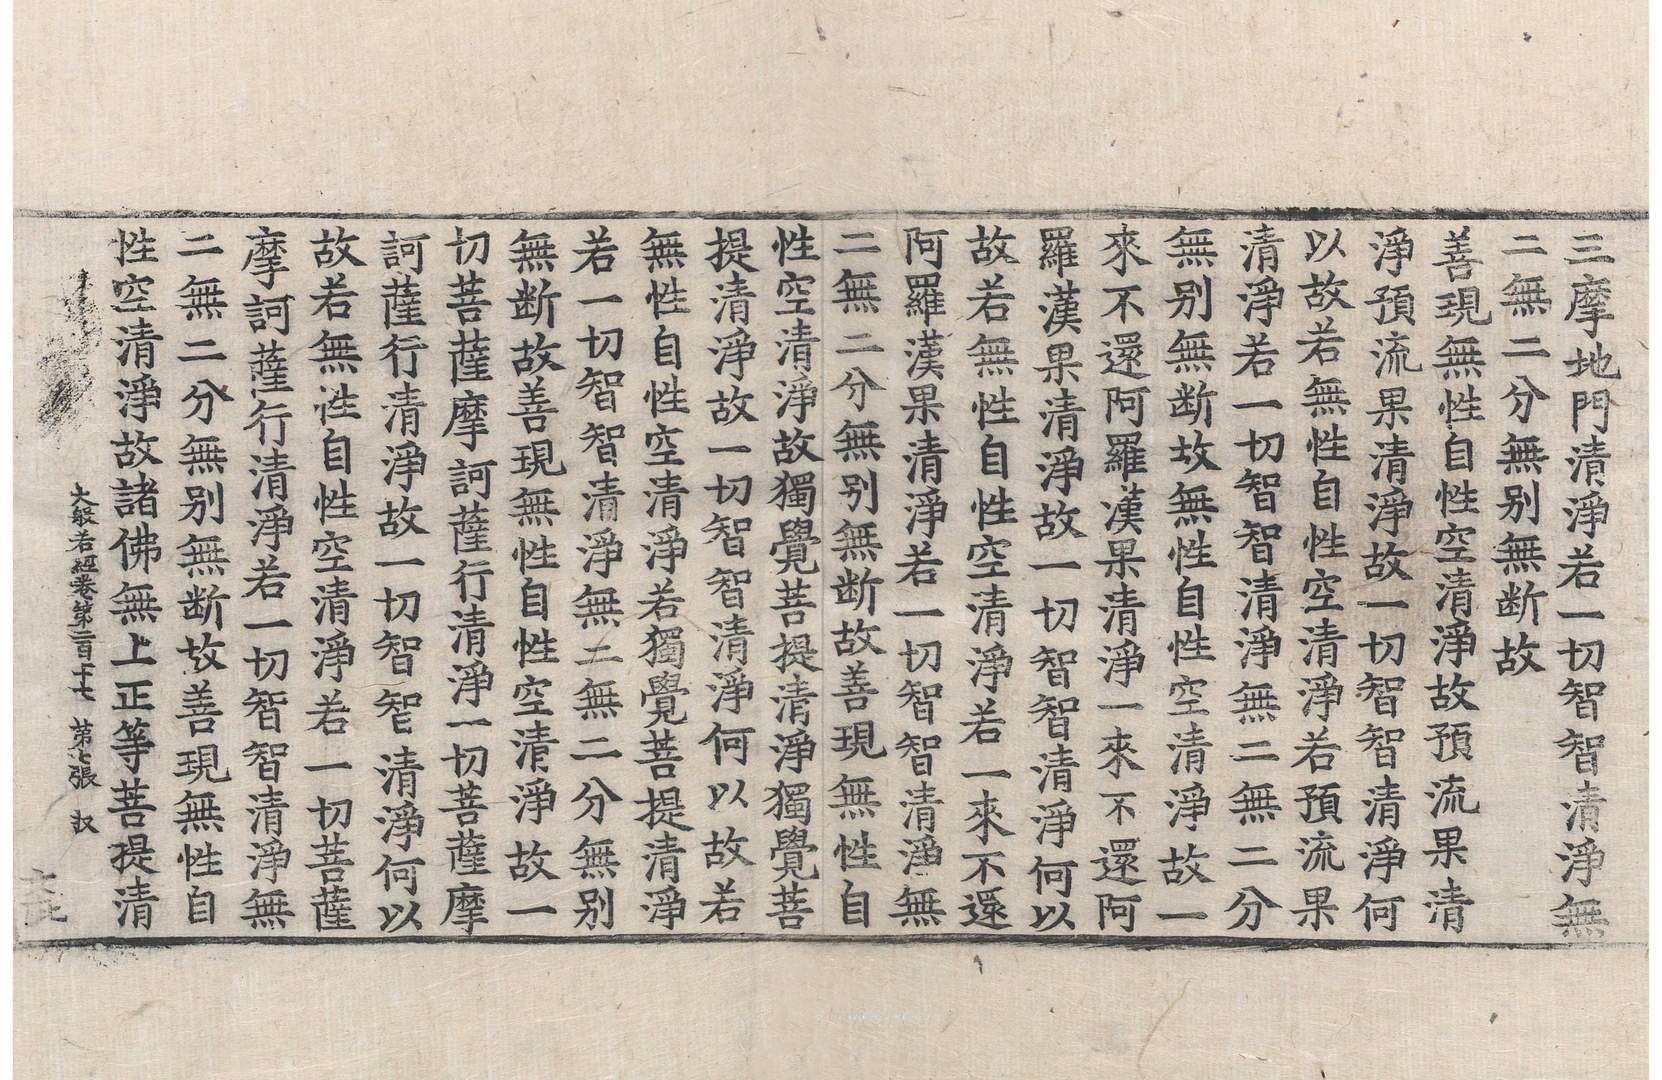 三摩地門清淨若一切智智清淨無
二無二分無别無断故
善現無性自性空清淨故預流果清
淨預流果清淨故一切智智清淨何
以故若無性自性空清淨若預流果
清淨若一切智智清淨無二無二分
無别無断故無性自性空清淨故一
來不還阿羅漢果清淨一來不還阿
羅漢果清淨故一切智智清淨何以
故若無性自性空清淨若一來不還
阿羅漢果清淨若一切智智清淨無
二無二分無别無断故善現無性自
性空清淨故獨覺菩提清淨獨覺菩
提清淨故一切智智清淨何以故若
無性自性空清淨若獨覺菩提清淨
若一切智智清淨無二無二分無别
無断故善現無性自性空清淨故一
切菩薩摩訶薩行清淨一切菩薩摩
訶薩行清淨故一切智智清淨何以
故若無性自性空清淨若一切菩薩
摩訶薩行清淨若一切智智清淨無
二無二分無别無断故善現無性自
性空清淨故諸佛無上正等菩提清
大般若經卷第二百十七 第七張